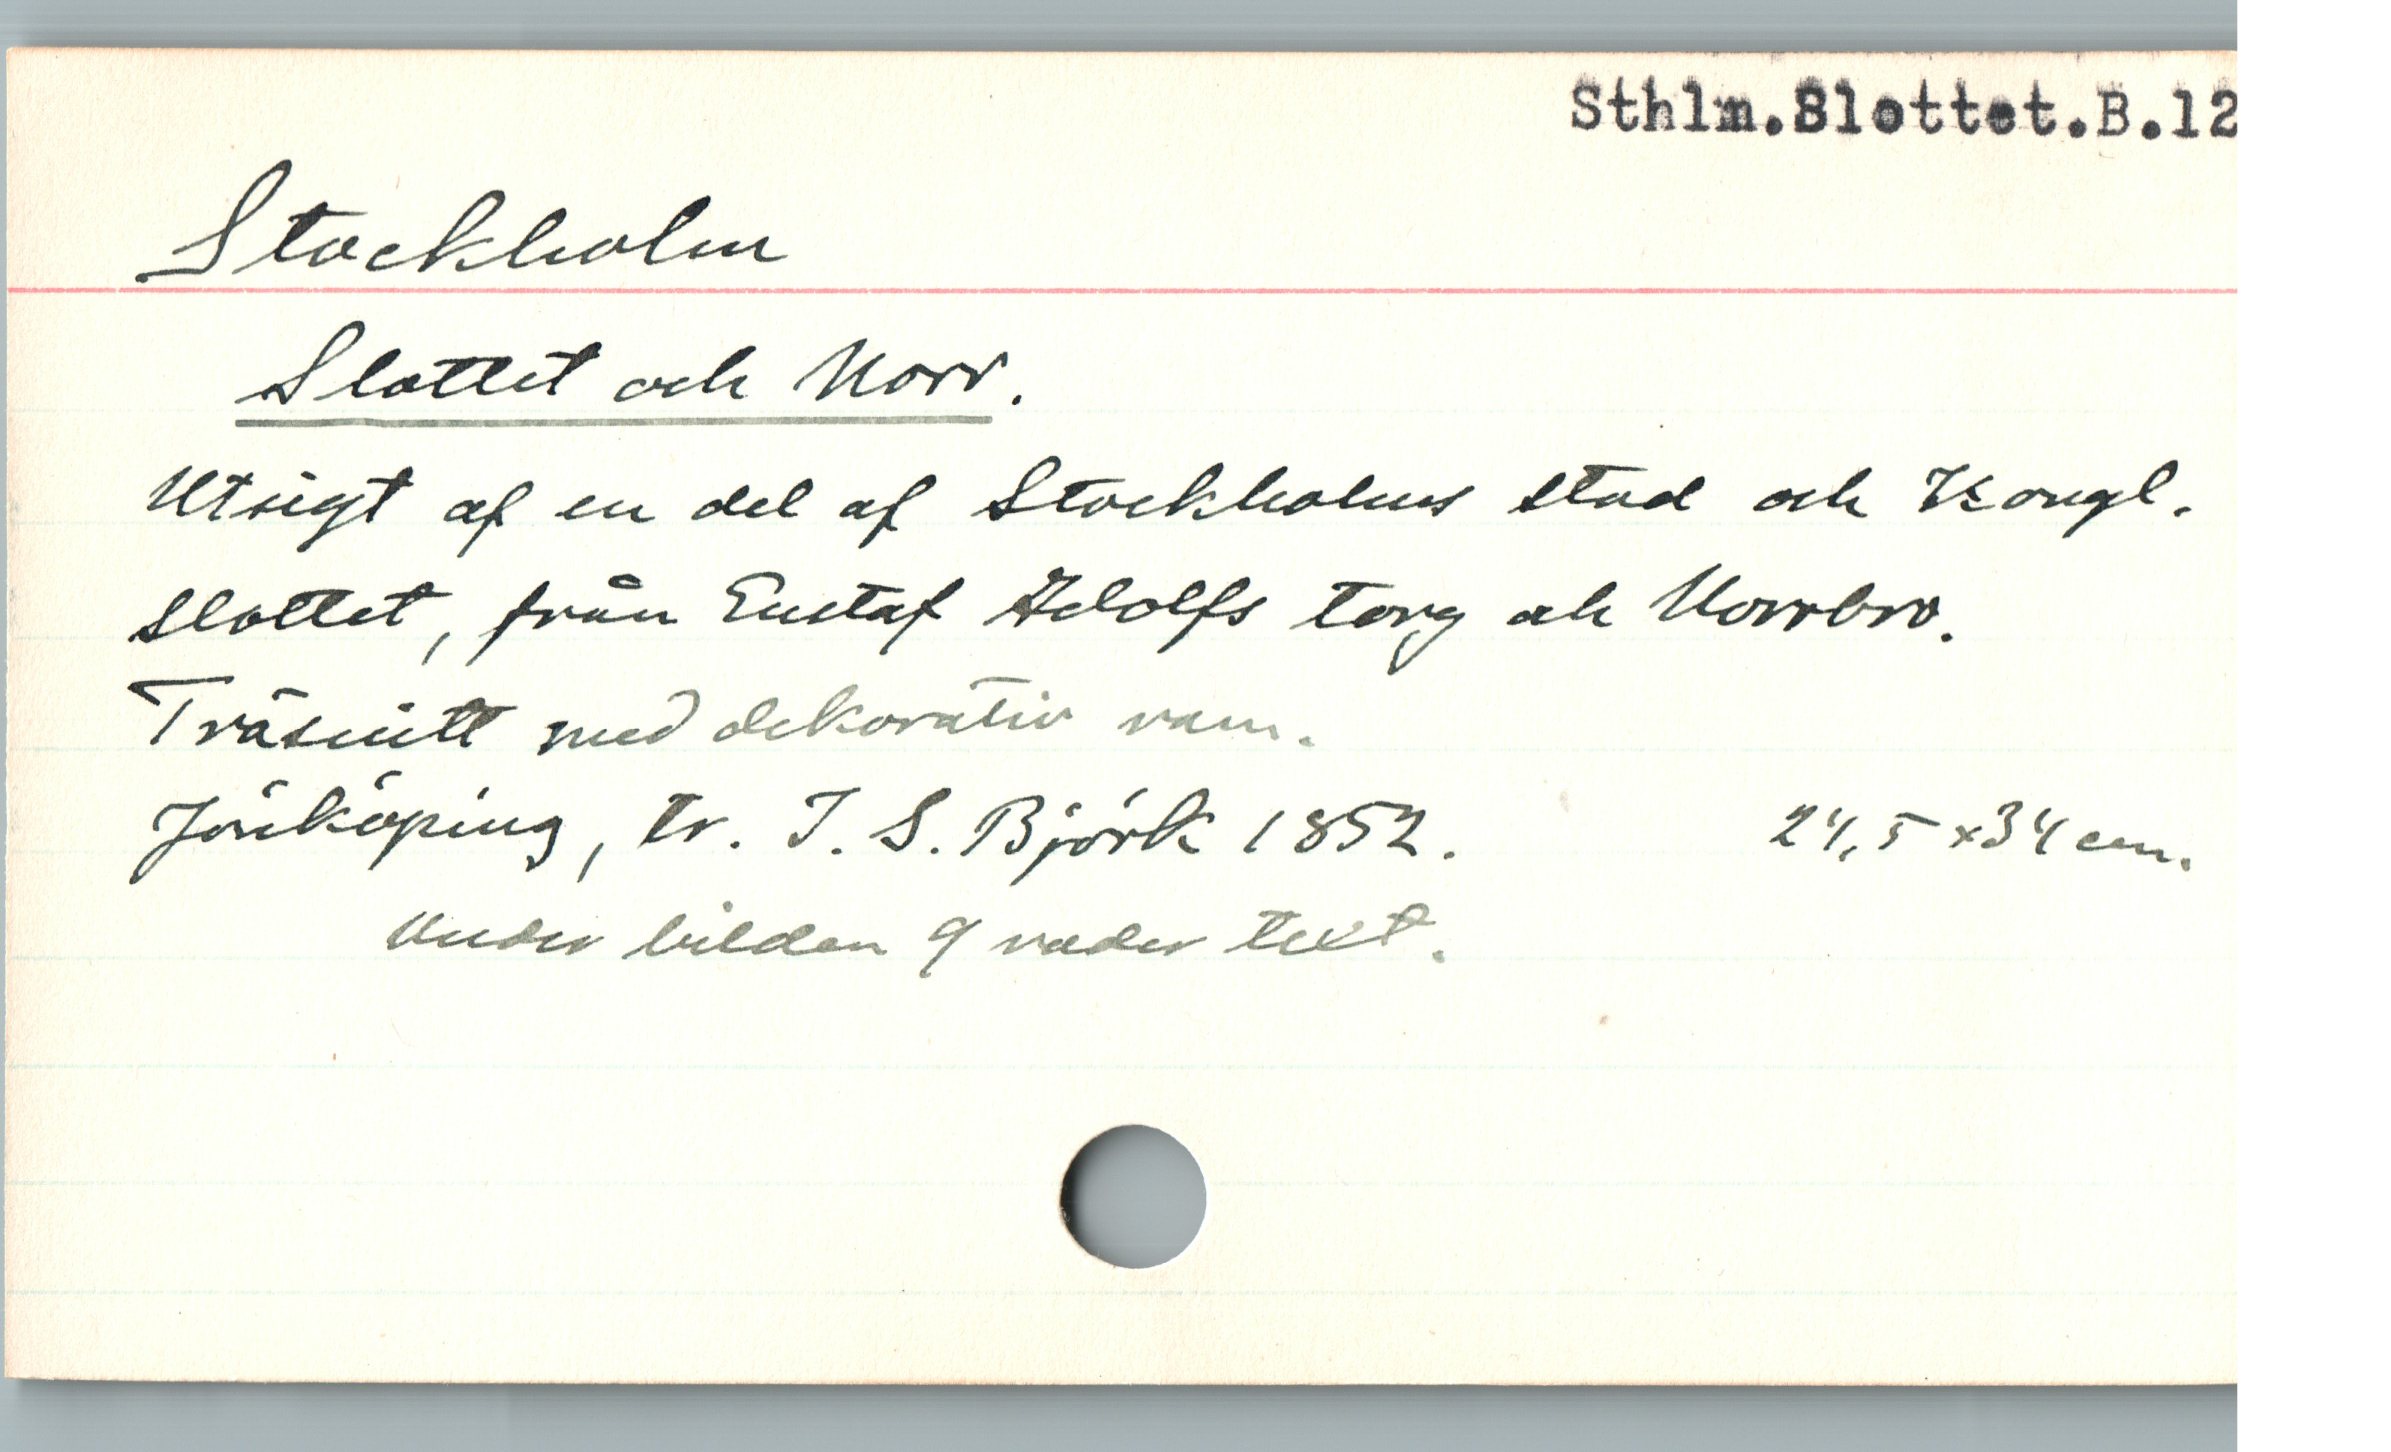 Sthlm.Slottet.B.12
Stockholm
Slottet och Norr.
Utsigt af en del af Stockholms stad och Kongl.
slottet, från Gustaf Adolfs torg och Norrbro.
Träsnitt med dekorativ ram.
Jönköping, tr. J. S. Björk 1852.    24,5 x 34 cm.
Under bilden 9 rader text.